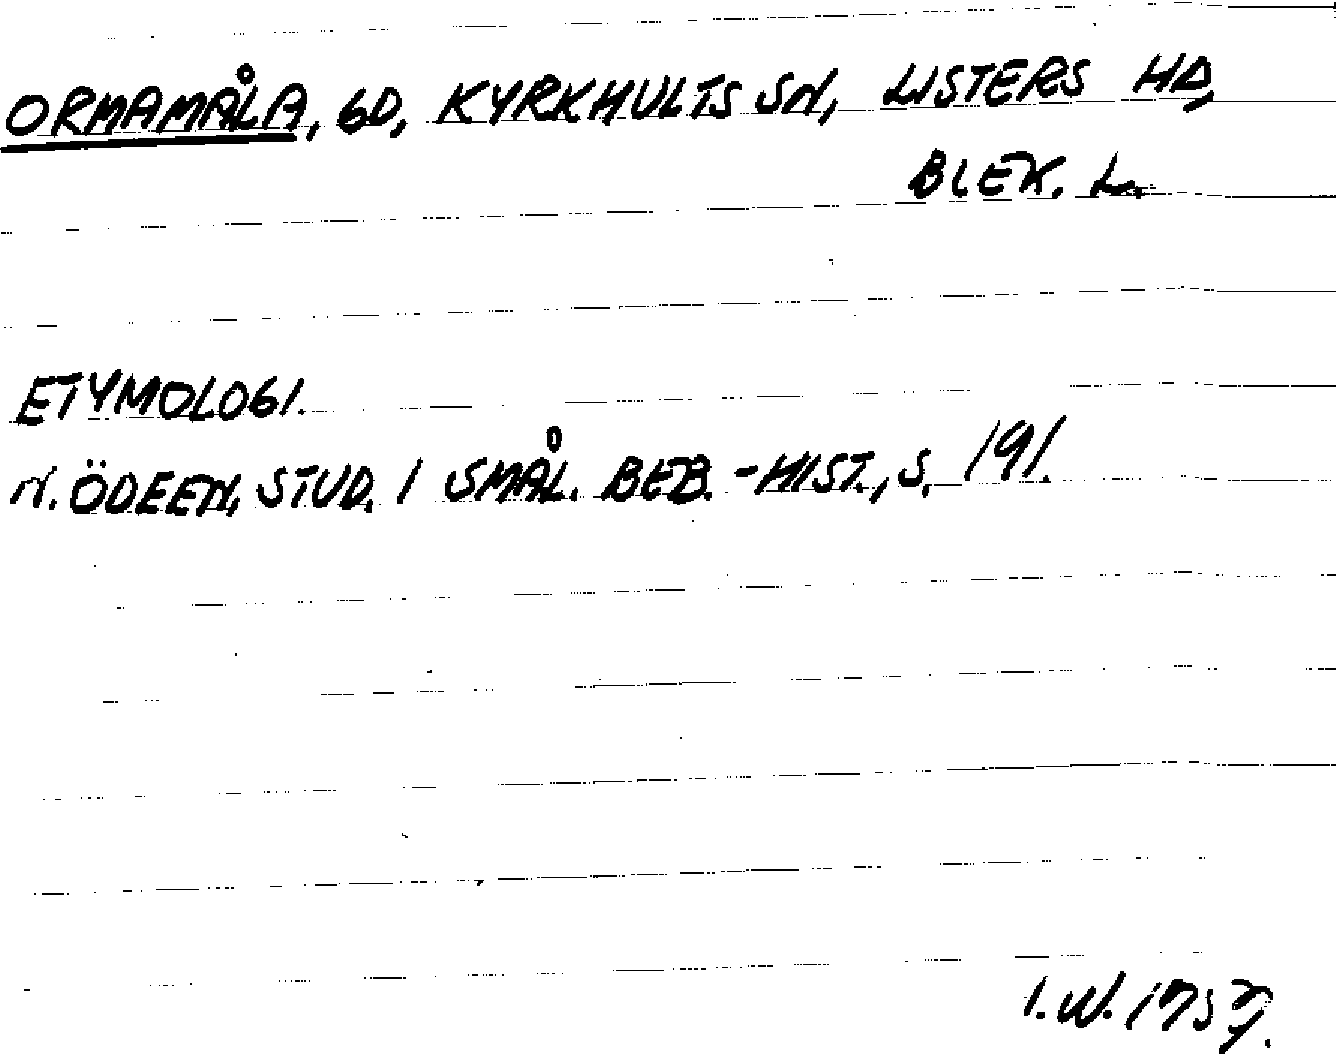 ORMAMÅLA, GD, KYRKHULTS SN, LISTERS HD,
BLEK. L.
ETYMOLOGI.
N. ÖDEEN, STUD. I SMÅL. BEB.-HIST., S. 191.
I.W. 1957.